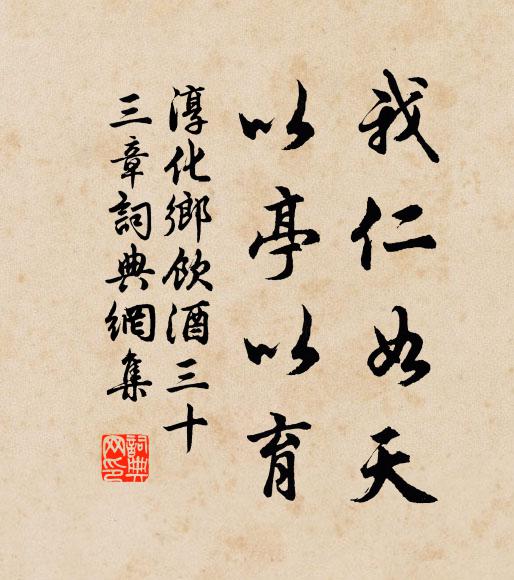 我仁如天
以亭以育
淳化鄉飲酒三十
三章詞典網集
詞典网印